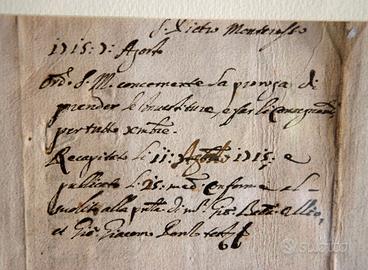 S. Pietro Monterosso
1715: 7: Agosto
Ord. S. M. concernente la proroga di
prender le investiture, e far li consegnam.ti
per tutto xmbre.
Recapitato li 11: Agosto 1715: e
publicato li 15: med. conforme al
solito alla pnta di m.r Gio: Batta
et Gio: Giacomo
subito